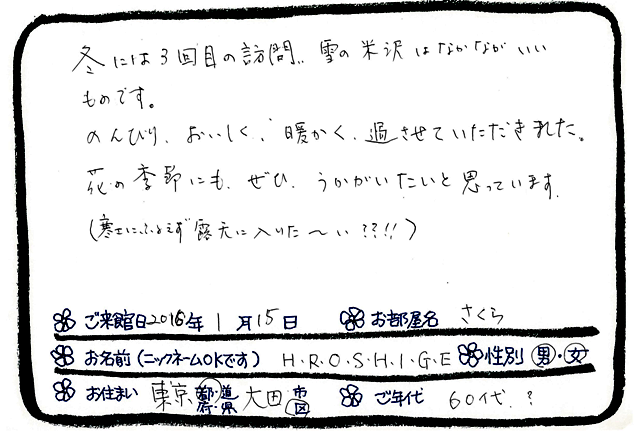 冬には3回目の訪問、雪の米沢はなかなかいい
ものです。
のんびり、おいしく、暖かく、過させていただきました。
花の季節にも、ぜひ、うかがいたいと思っています。
(寒さにふるえず露天に入りた〜い???!!)
ご来館日2016年1月15日 お部屋名 さくら
お名前(ニックネームOKです) H・R・O・S・H・I・G・E 性別 男・女
お住まい 東京 都・道・府・県 大田 市 区 ご年代 60代.?